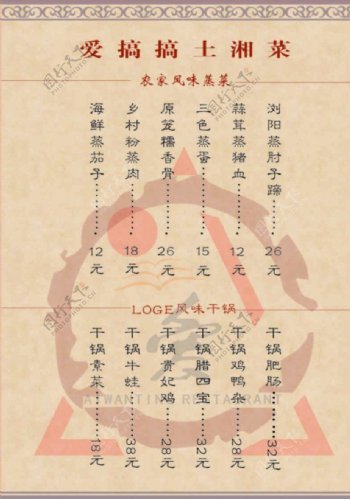 爱搞搞土湘菜
农家风味蒸菜
浏阳蒸肘子蹄……26元
蒜茸蒸猪血……12元
三色蒸蛋……15元
原笼糯香骨……26元
乡村粉蒸肉……18元
海鲜蒸茄子……12元
LOGE风味干锅
干锅肥肠……32元
干锅鸡鸭杂……28元
干锅腊四宝……32元
干锅贵妃鸡……28元
干锅牛蛙……38元
干锅素菜……18元
爱
AIWANTING RESTAURANT